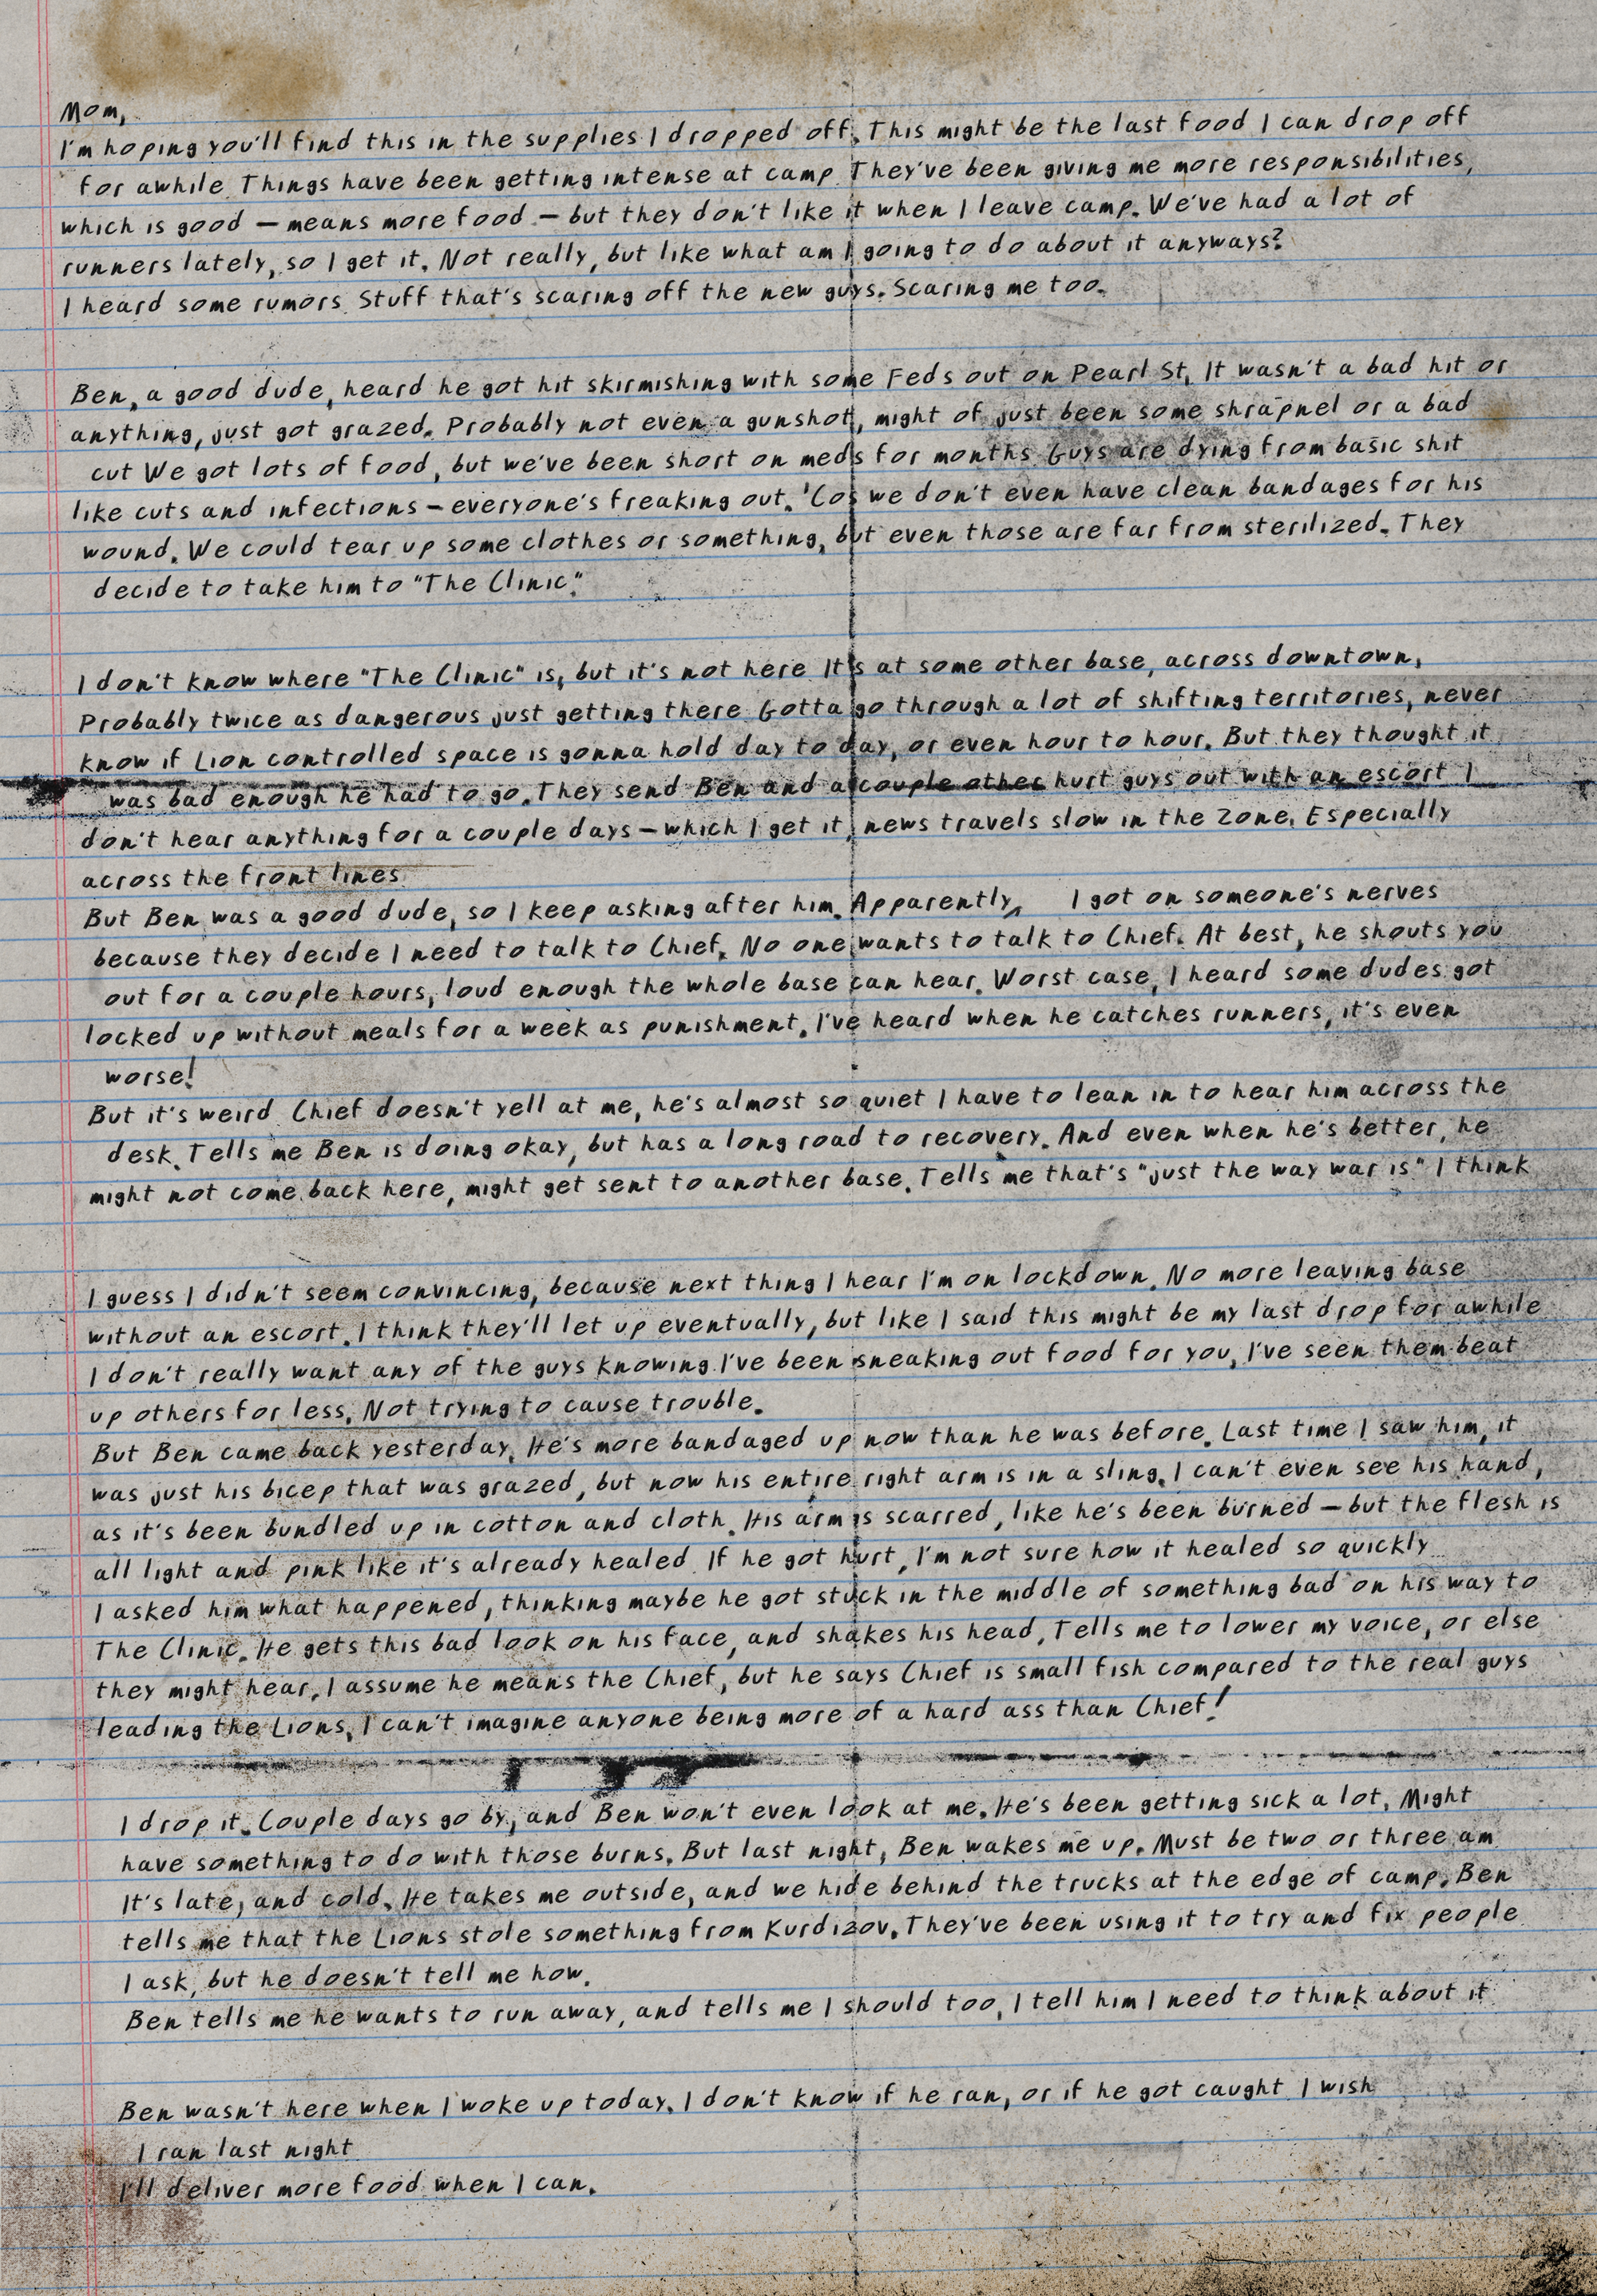 Mom,
I'm hoping you'll find this in the supplies I dropped off. This might be the last food I can drop off
for awhile. Things have been getting intense at camp. They've been giving me more responsibilities,
which is good – means more food – but they don't like it when I leave camp. We've had a lot of
runners lately, so I get it. Not really, but like what am I going to do about it anyways?
I heard some rumors. Stuff that's scaring off the new guys. Scaring me too.
Ben, a good dude, heard he got hit skirmishing with some Feds out on Pearl St. It wasn't a bad hit or
anything, just got grazed. Probably not even a gunshot, might of just been some shrapnel or a bad
cut We got lots of food, but we've been short on meds for months. Guys are dying from basic shit
like cuts and infections – everyone's freaking out. 'Cos we don't even have clean bandages for his
wound. We could tear up some clothes or something, but even those are far from sterilized. They
decide to take him to "The Clinic."
I don't know where "The Clinic" is, but it's not here It's at some other base, across downtown.
Probably twice as dangerous just getting there. Gotta go through a lot of shifting territories, never
know if Lion controlled space is gonna hold day to day, or even hour to hour. But they thought it
was bad enough he had to go. They send Ben and a couple other hurt guys out with an escort I
don't hear anything for a couple days – which I get it, news travels slow in the Zone. Especially
across the front lines.
But Ben was a good dude, so I keep asking after him. Apparently, I got on someone's nerves
because they decide I need to talk to Chief. No one wants to talk to Chief. At best, he shouts you
out for a couple hours, loud enough the whole base can hear. Worst case, I heard some dudes got
locked up without meals for a week as punishment. I've heard when he catches runners, it's even
worse!
But it's weird Chief doesn't yell at me, he's almost so quiet I have to lean in to hear him across the
desk. Tells me Ben is doing okay, but has a long road to recovery. And even when he's better, he
might not come back here, might get sent to another base. Tells me that's "just the way war is" I think
I guess I didn't seem convincing, because next thing I hear I'm on lockdown. No more leaving base
without an escort. I think they'll let up eventually, but like I said this might be my last drop for awhile
I don't really want any of the guys knowing I've been sneaking out food for you, I've seen them beat
up others for less. Not trying to cause trouble.
But Ben came back yesterday. He's more bandaged up now than he was before. Last time I saw him, it
was just his bicep that was grazed, but now his entire right arm is in a sling. I can't even see his hand,
as it's been bundled up in cotton and cloth. His arm is scarred, like he's been burned – but the flesh is
all light and pink like it's already healed If he got hurt, I'm not sure how it healed so quickly
I asked him what happened, thinking maybe he got stuck in the middle of something bad on his way to
The Clinic. He gets this bad look on his face, and shakes his head. Tells me to lower my voice, or else
they might hear. I assume he means the Chief, but he says Chief is small fish compared to the real guys
leading the Lions. I can't imagine anyone being more of a hard ass than Chief!
I drop it. Couple days go by, and Ben won't even look at me. He's been getting sick a lot. Might
have something to do with those burns. But last night, Ben wakes me up. Must be two or three am
It's late, and cold. He takes me outside, and we hide behind the trucks at the edge of camp. Ben
tells me that the Lions stole something from Kurdizov. They've been using it to try and fix people
I ask, but he doesn't tell me how.
Ben tells me he wants to run away, and tells me I should too, I tell him I need to think about it
Ben wasn't here when I woke up today. I don't know if he ran, or if he got caught I wish
I ran last night
I'll deliver more food when I can.